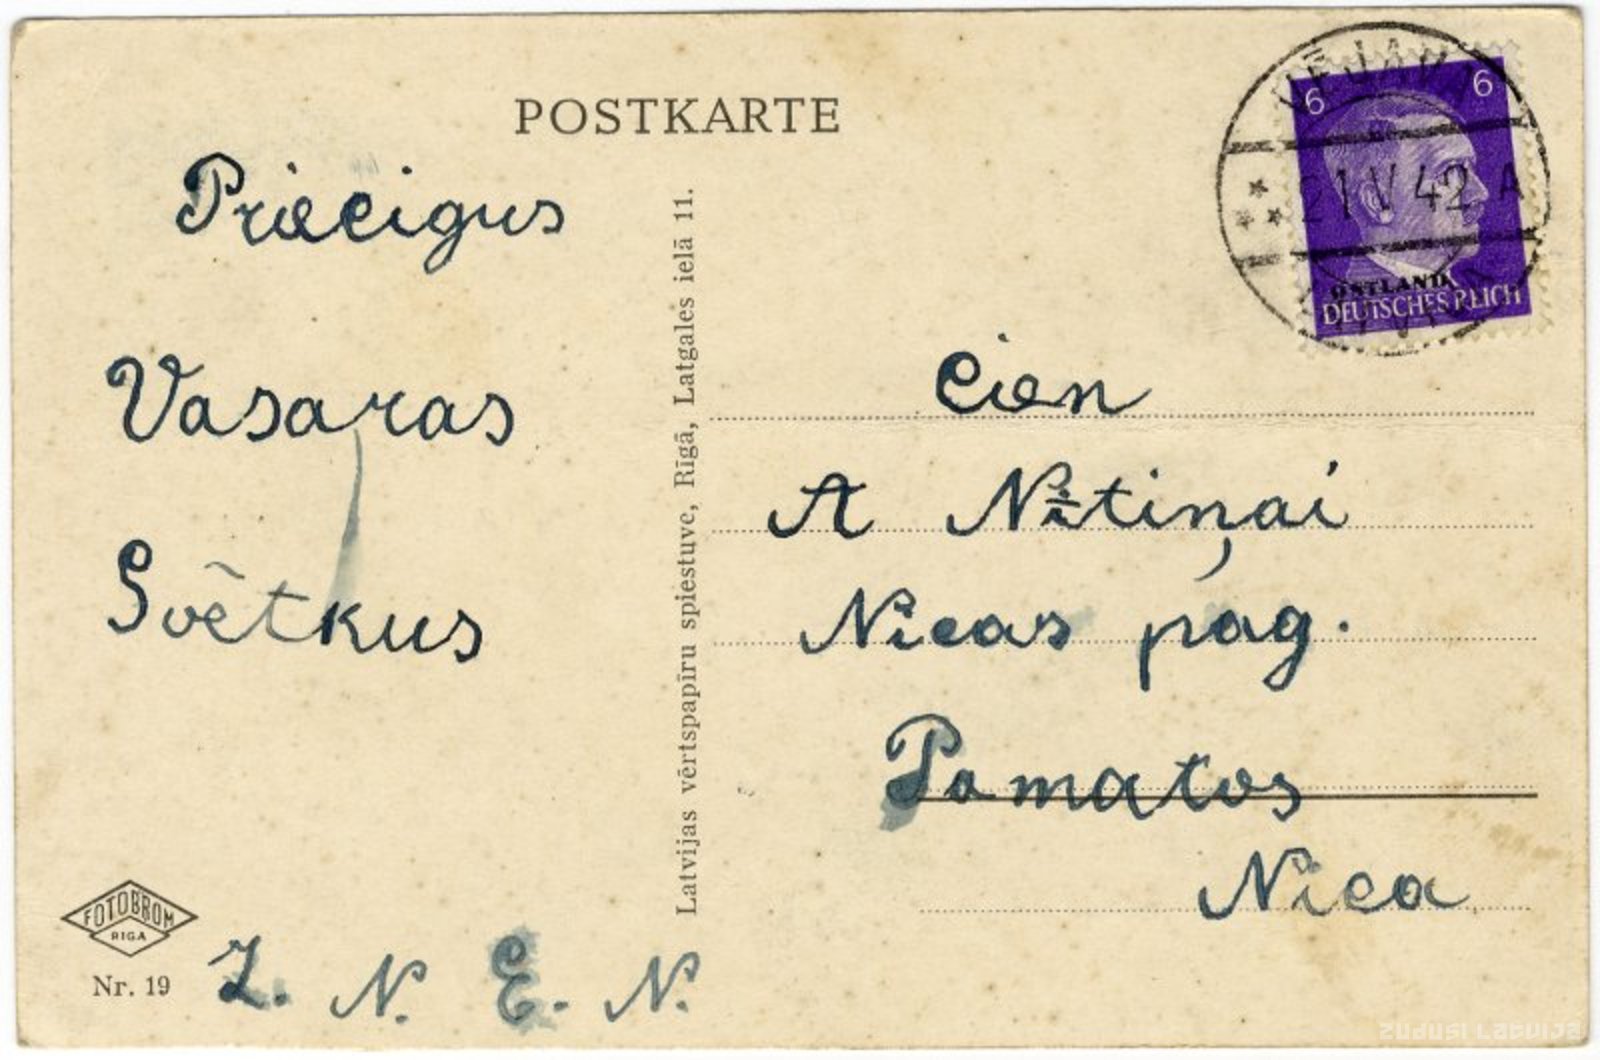 POSTKARTE
Priecigus
Vasaras
Svētkus
Z. N. E. N.
FOTOBROM
RIGA
Nr. 19
Latvijas vērtspapīru spiestuve, Rīgā, Latgales ielā 11.
6 6
21 V 42 A
OSTLAND
DEUTSCHES REICH
Cien
A Nītiņai
Nicas pag.
Pamatos
Nica
ZUDUSI LATVIJA